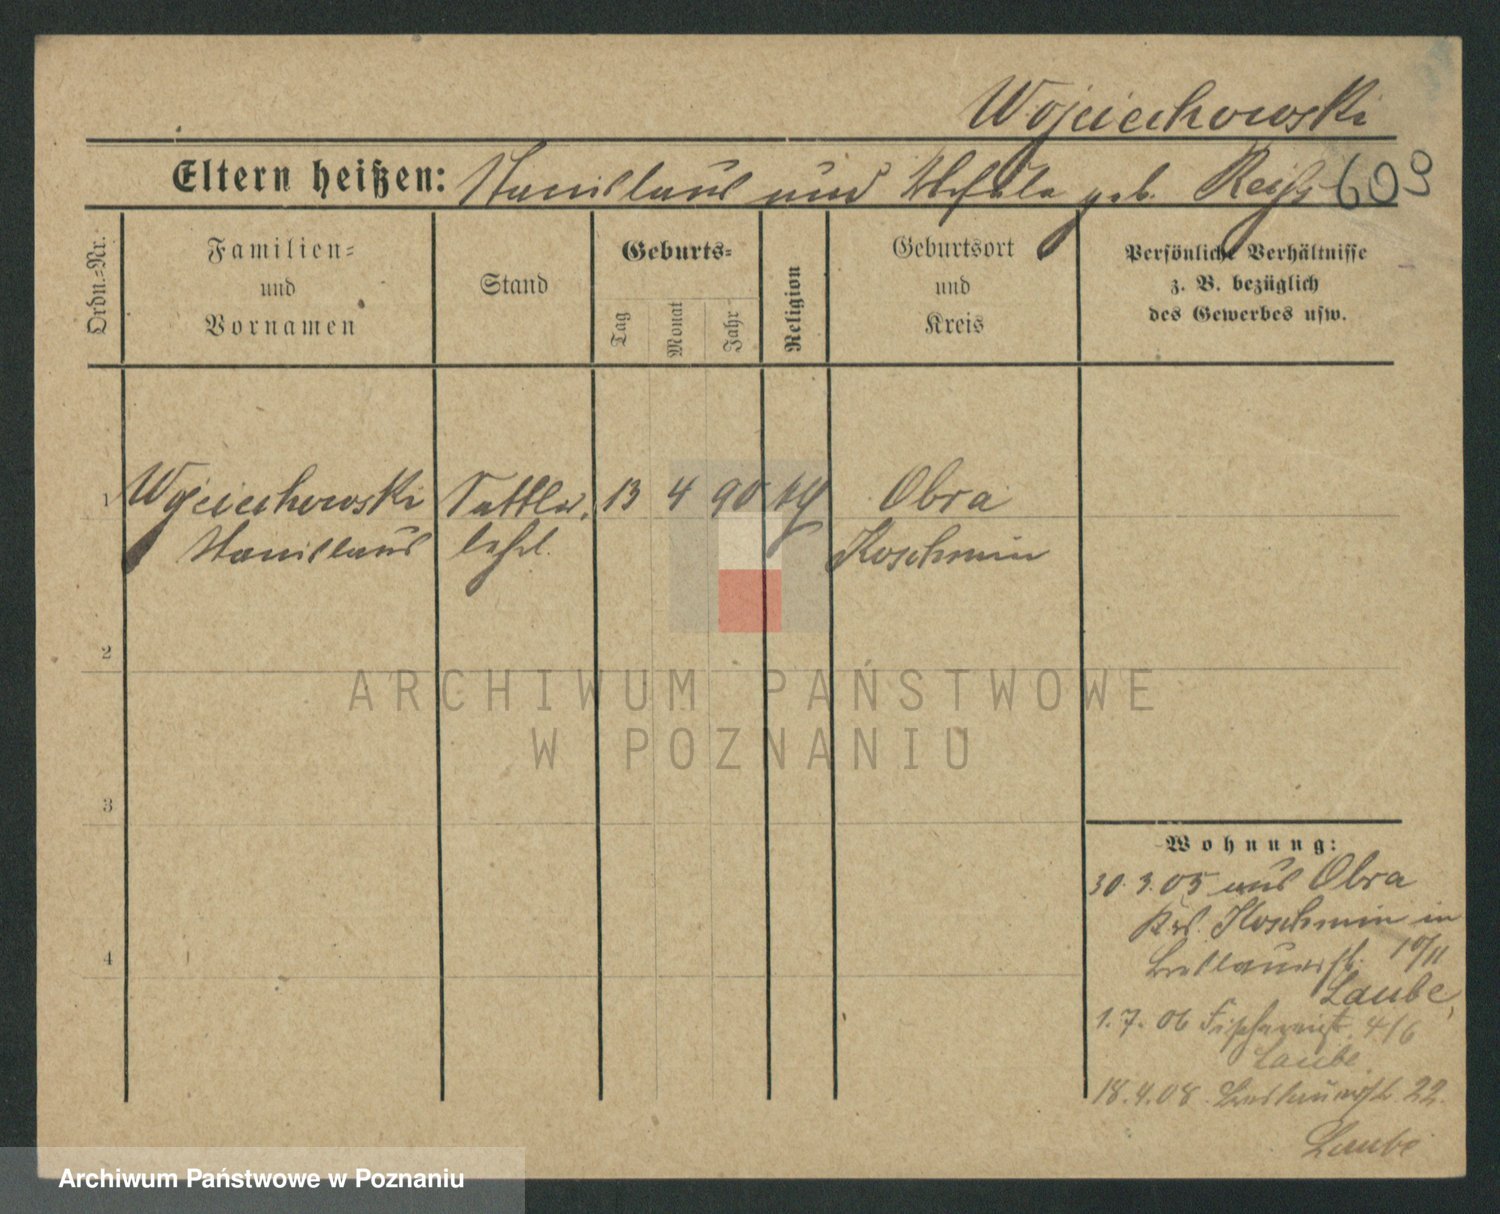 Wojciechowski
Eltern heißen: Stanislaus und geb. Reiß 609
Ordn.=Nr.
Familien=
und
Vornamen
Stand
Geburts=
Tag
Monat
Jahr
Religion
Geburtsort
und
Kreis
Persönliche Verhältnisse
z. B. bezüglich
des Gewerbes usw.
1 Wojciechowski Sattler. 13 4 90 kth Obra
Stanislaus lehrl. Koschmin
2
3
4
Wohnung:
30. 3. 05 aus Obra
Krs. Koschmin in
Breslauerstr. 10/11
Laube,
1. 7. 06 4/6
Laube
18. 4. 08. Breslauerstr. 22.
Laube
ARCHIWUM PAŃSTWOWE
W POZNANIU
Archiwum Państwowe w Poznaniu